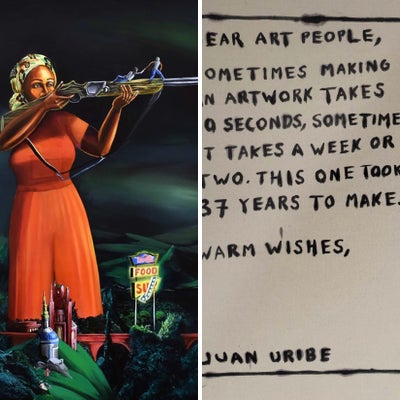 FOOD
SU
EAR ART PEOPLE,
OMETIMES MAKING
N ARTWORK TAKES
0 SECONDS, SOMETIME
T TAKES A WEEK OR
TWO. THIS ONE TOOK
37 YEARS TO MAKE.
WARM WISHES,
JUAN URIBE